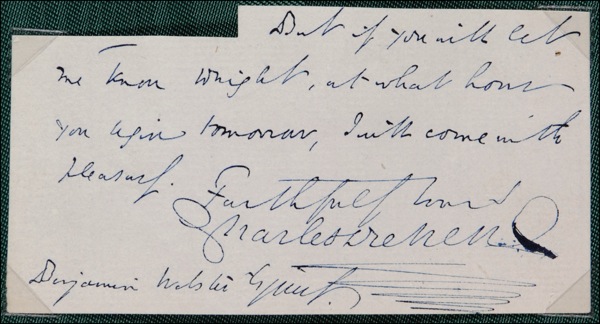 But if you will let
me know tonight, at what hour
you begin tomorrow, I will come with
pleasure.
Faithfully Yours
Charles Dickens
Benjamin Webster Esquire.